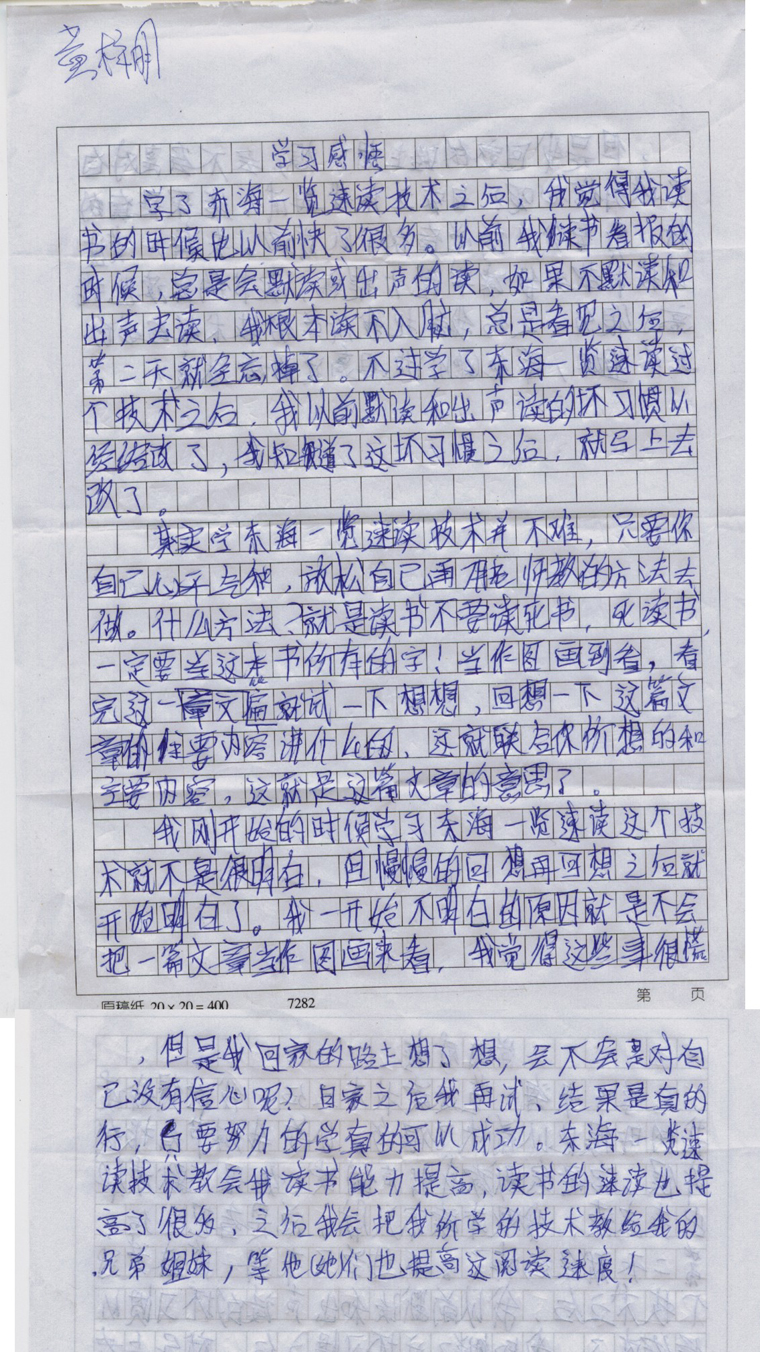 黄梓明
学习感悟
学了东海一览速读技术之后，我觉得我读
书的时候比以前快了很多。以前我读书看报的
时候，总是会默读或出声的读，如果不默读和
出声去读，我根本读不入脑，总是看见之后，
第二天就全忘掉了。不过学了东海一览速读过
个技术之后，我以前默读和出声读的坏习惯以
经结改了，我知道了这坏习惯之后，就马上去
改了。
其实学东海一览速读技术并不难，只要你
自己心平气和，放松自己再用老师教的方法去
做。什么方法？就是读书不要读死书，死读书，
一定要当这本书所有的字！当作图画到看，看
完这一章文偏就试一下想想，回想一下这篇文
章的住要内容讲什么的，这就联合你所想的和
主要内容，这就是这篇文章的意思了。
我刚开始的时候学习东海一览速读这个技
术就不是很明白，但慢慢的回想再回想之后就
开始明白了。我一开始不明白的原因就是不会
把一篇文章当作图画来看，我觉得这些事很慌
原稿纸 20×20＝400 7282 第 页
，但是我回家的路上想了想，会不会是对自
己没有信心呢？回家之后我再试、结果是真的
行，只要努力的学真的可以成功。东海一览速
读技术教会我读书能力提高，读书的速读也提
高了很多、之后我会把我所学的技术教给我的
兄弟姐妹，等他(她)们也提高这阅读速度！